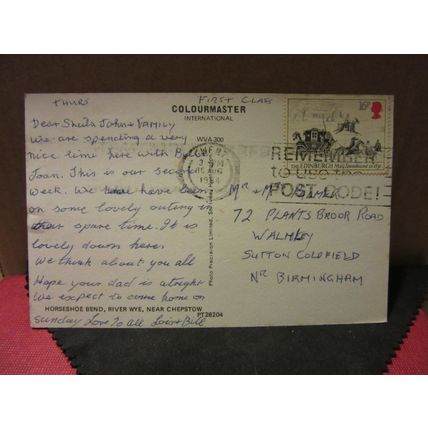 THURS
FIRST CLASS
COLOURMASTER
INTERNATIONAL
Dear Sheila John & FAMILY
We are spending a very
nice time here with Bill &
Joan. This is our second
week. We have been
on some lovely outing in
our spare time. It is
lovely down here.
We think about you all
Hope your dad is alright
We expect to come home on
Sunday Love to all Lois & Bill
WVA 300
Photo Precision Limited
HORSESHOE BEND, RIVER WYE, NEAR CHEPSTOW
PT28204
16P
THE EDINBURGH Mail
1984
REMEMBER
TO USE THE
POST CODE!
MR & MRS
72 PLANTS BROOK ROAD
WALMLEY
SUTTON COLDFIELD
NR BIRMINGHAM